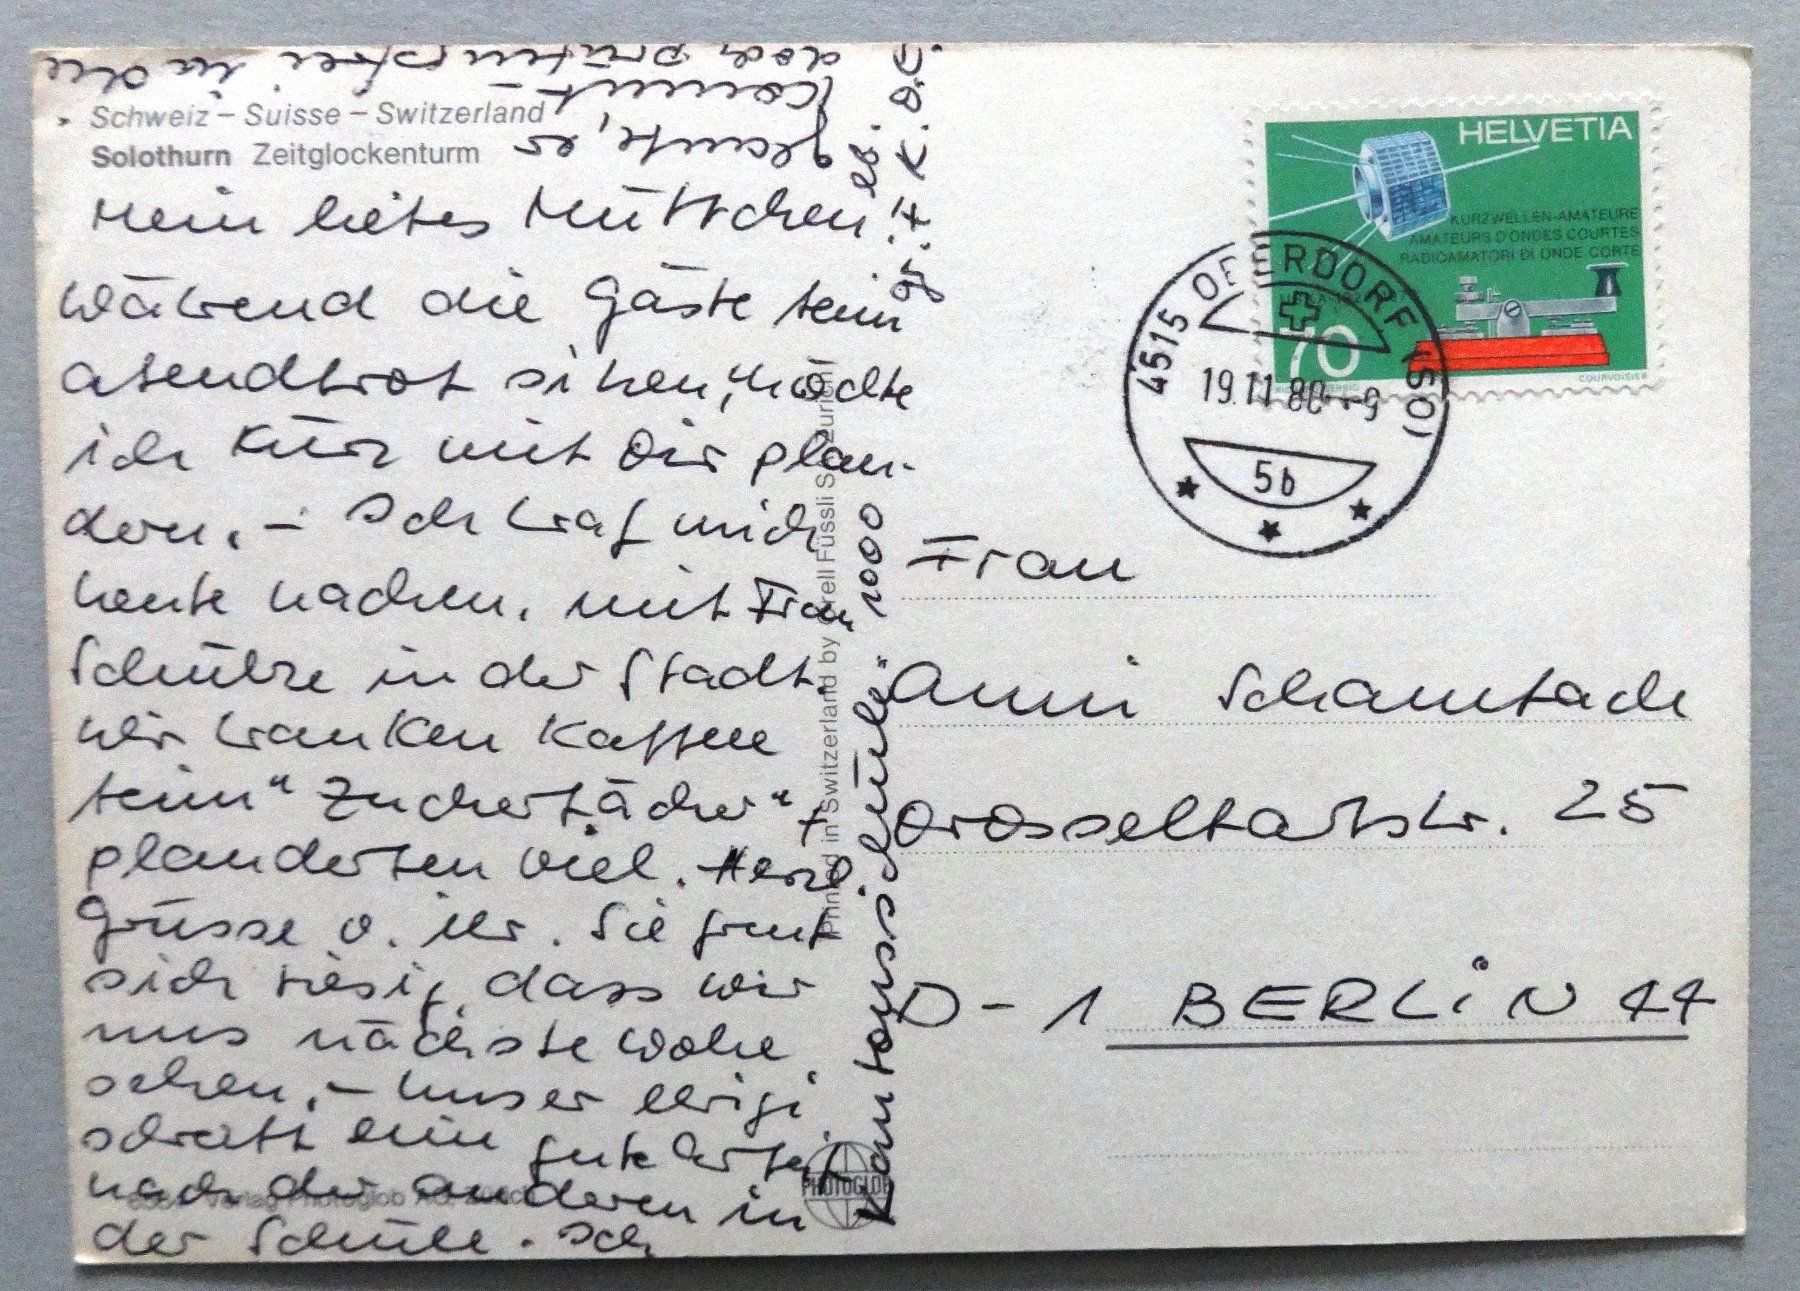 Schweiz – Suisse – Switzerland
Solothurn Zeitglockenturm
Mein liebes Müttchen!
Während die Gäste beim
Abendbrot sitzen, möchte
ich kurz mit Dir plau-
dern. – Ich traf mich
heute nachm. mit Frau
Schulze in der Stadt.
Wir tranken Kaffee
beim "Zuckerbäcker" +
plauderten viel. Herzl.
Grüsse v. ihr. Sie freut
sich riesig, dass wir
uns nächste Woche
sehen. – Unser
schreibt eine gute Arbeit
nach der anderen in
der Schule. Ich
glaube, er
kommt
doch prüfungsfrei in die
Kantonsschule" 1000
PHOTOGLOB
Printed in Switzerland by Orell Füssli
HELVETIA
KURZWELLEN-AMATEURE
AMATEURS D'ONDES COURTES
RADIOAMATORI DI ONDE CORTE
70
COURVOISIER
4515 OBERDORF (SO)
19.11.80 -9
5b
Frau
Anni Schambach
Drosselbartstr. 25
D-1 BERLIN 44